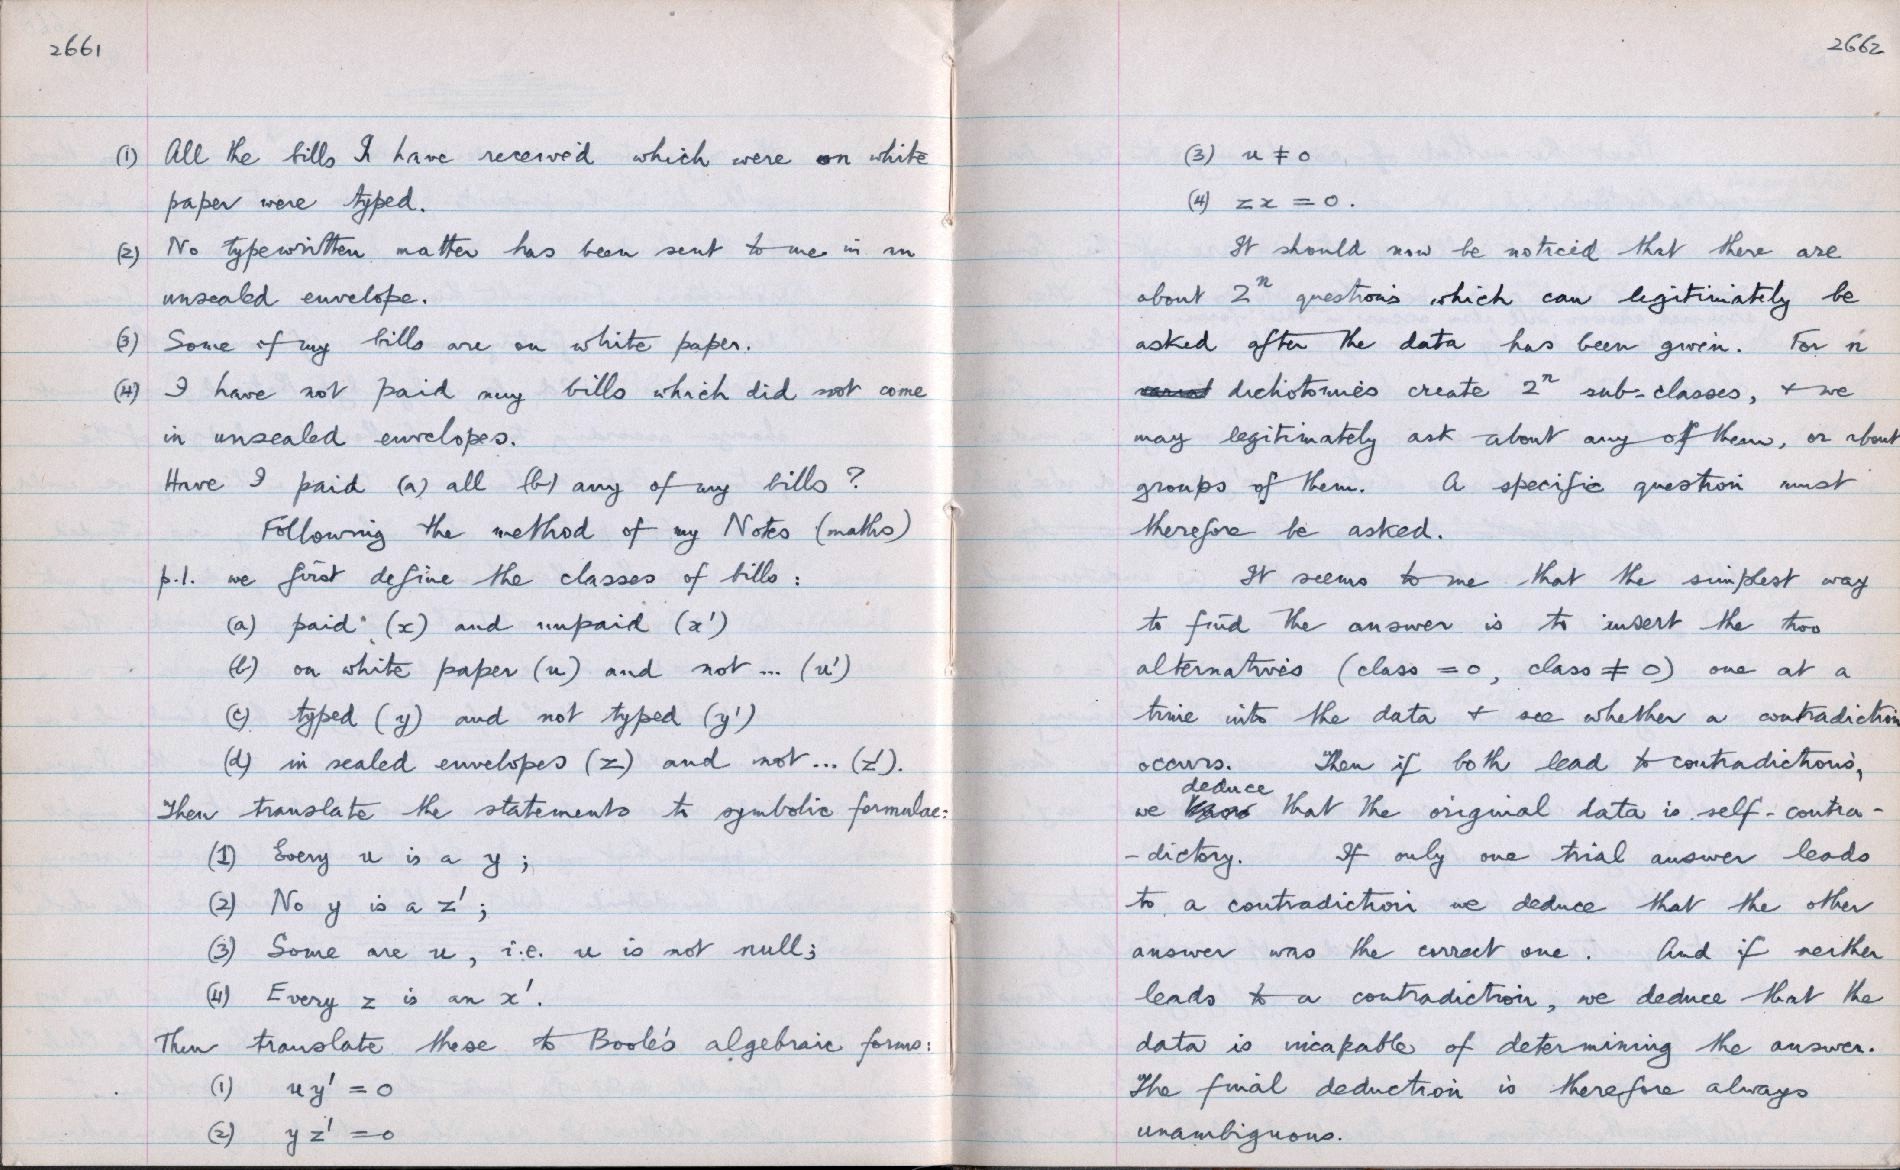 2661
(1) All the bills I have received which were on white
paper were typed.
(2) No typewritten matter has been sent to me in an
unsealed envelope.
(3) Some of my bills are on white paper.
(4) I have not paid any bills which did not come
in unsealed envelopes.
Have I paid (a) all (b) any of my bills?
Following the method of my Notes (maths)
p.1. we first define the classes of bills:
(a) paid (x) and unpaid (x')
(b) on white paper (u) and not... (u')
(c) typed (y) and not typed (y')
(d) in sealed envelopes (z) and not... (z').
Then translate the statements to symbolic formulae:
(1) Every u is a y;
(2) No y is a z';
(3) Some are u, i.e. u is not null;
(4) Every z is an x'.
Then translate these to Boole's algebraic forms:
(1) uy' = 0
(2) yz' = 0
2662
(3) u ≠ 0
(4) zx = 0.
It should now be noticed that there are
about 2ⁿ questions which can legitimately be
asked after the data has been given. For n
dichotomies create 2ⁿ sub-classes, + we
may legitimately ask about any of them, or about
groups of them. A specific question must
therefore be asked.
It seems to me that the simplest way
to find the answer is to insert the two
alternatives (class = 0, class ≠ 0) one at a
time into the data + see whether a contradiction
occurs. Then if both lead to contradictions,
we deduce that the original data is self-contra-
-dictory. If only one trial answer leads
to a contradiction we deduce that the other
answer was the correct one. And if neither
leads to a contradiction, we deduce that the
data is incapable of determining the answer.
The final deduction is therefore always
unambiguous.